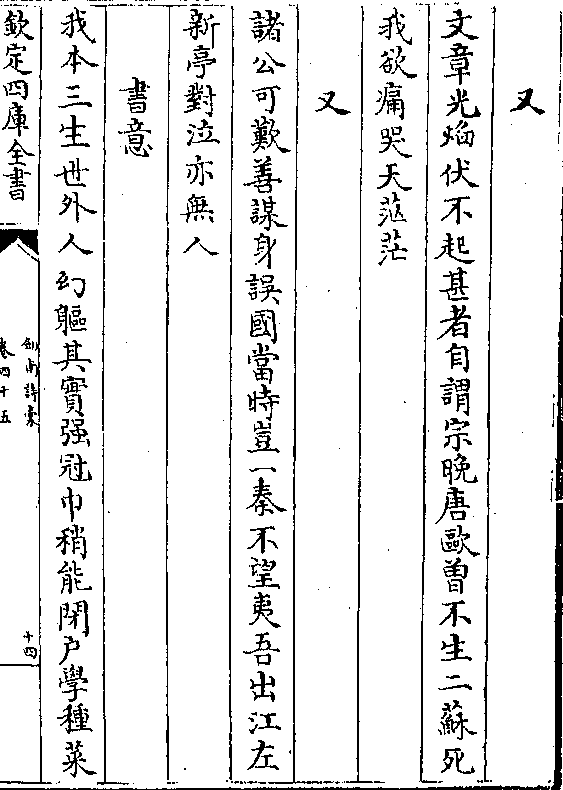 又
文章光焰伏不起甚者自謂宗晚唐歐曾不生二蘇死
我欲痛哭天茫茫
又
諸公可歎善謀身誤國當時豈一秦不望夷吾出江左
新亭對泣亦無人
書意
我本三生世外人幻軀其實强冠巾稍能閉户學種菜
欽定四庫全書
劍南詩稾
卷四十五
十四